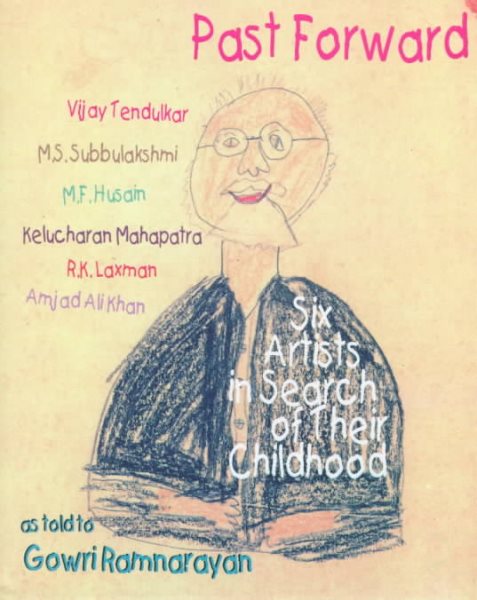 Past Forward
Vijay Tendulkar
M.S. Subbulakshmi
M.F. Husain
Kelucharan Mahapatra
R.K. Laxman
Amjad Ali Khan
Six
Artists
in Search
of Their
Childhood
as told to
Gowri Ramnarayan